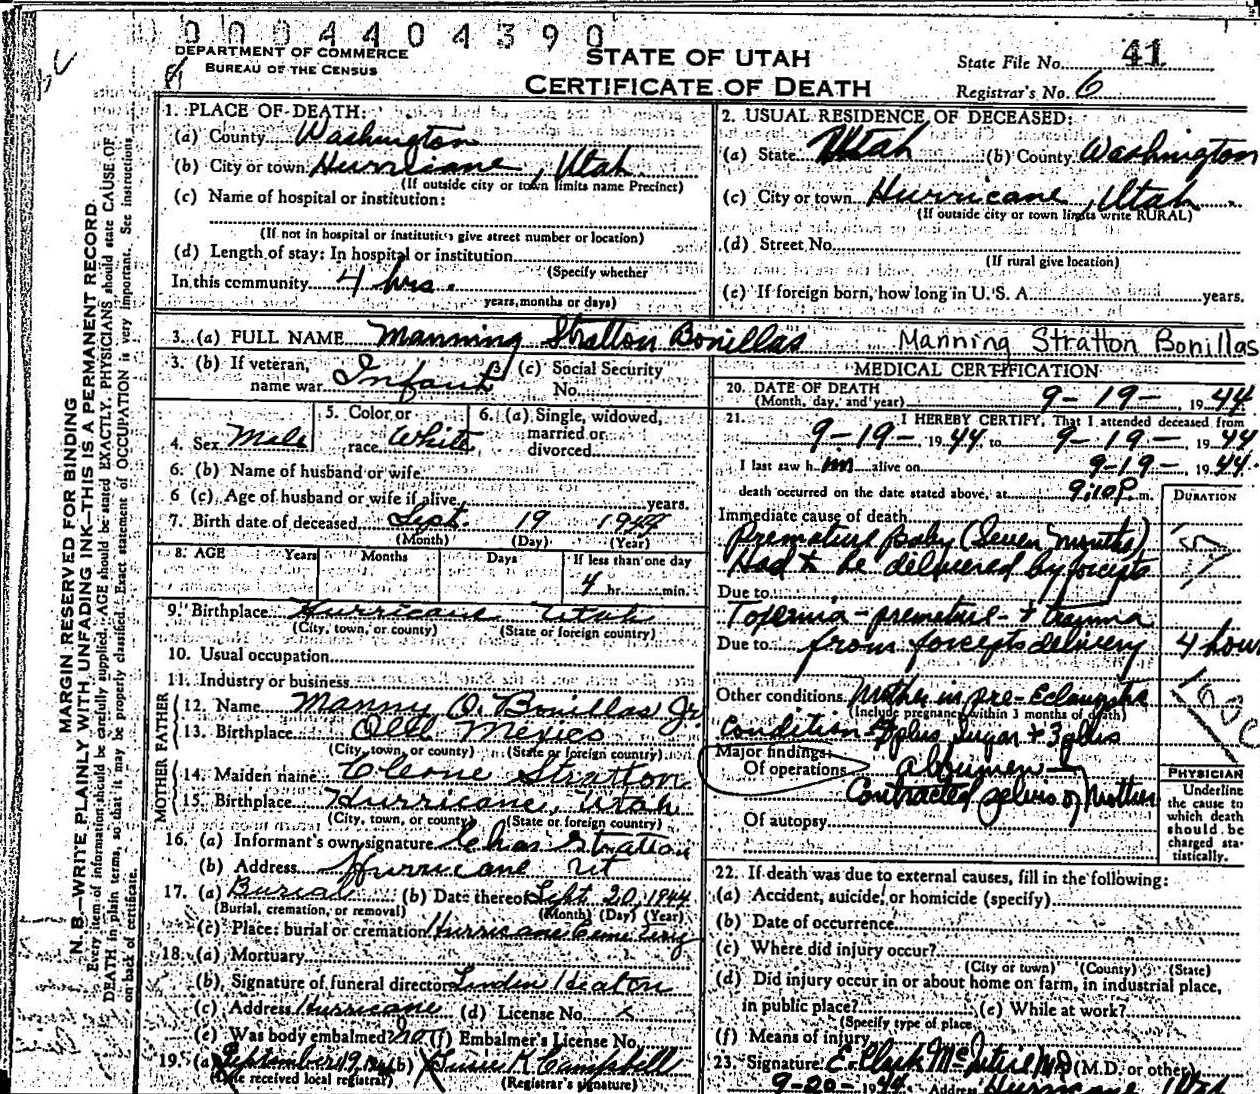 0004404390
DEPARTMENT OF COMMERCE
BUREAU OF THE CENSUS
STATE OF UTAH
CERTIFICATE OF DEATH
State File No. 41
Registrar's No. 6
MARGIN RESERVED FOR BINDING
N. B.—WRITE PLAINLY WITH UNFADING INK—THIS IS A PERMANENT RECORD.
Every item of information should be carefully supplied. AGE should be stated EXACTLY. PHYSICIANS should state CAUSE OF
DEATH in plain terms, so that it may be properly classified. Exact statement of OCCUPATION is very important. See instructions
on back of certificate.
1. PLACE OF DEATH:
(a) County Washington
(b) City or town Hurricane, Utah
(If outside city or town limits name Precinct)
(c) Name of hospital or institution:
(If not in hospital or institution give street number or location)
(d) Length of stay: In hospital or institution
(Specify whether
In this community 4 hrs.
years, months or days)
2. USUAL RESIDENCE OF DECEASED:
(a) State Utah (b) County Washington
(c) City or town Hurricane, Utah
(If outside city or town limits write RURAL)
(d) Street No.
(If rural give location)
(e) If foreign born, how long in U. S. A. years.
3. (a) FULL NAME Manning Stratton Bonillas Manning Stratton Bonillas
3. (b) If veteran, name war Infant 3. (c) Social Security No.
4. Sex Male 5. Color or race White 6. (a) Single, widowed, married or divorced
6. (b) Name of husband or wife
6 (c). Age of husband or wife if alive years.
7. Birth date of deceased Sept. 19 1944
(Month) (Day) (Year)
8. AGE Years Months Days If less than one day
4 hr. min.
9. Birthplace Hurricane Utah
(City, town, or county) (State or foreign country)
10. Usual occupation
11. Industry or business
FATHER
12. Name Manny O. Bonillas Jr
13. Birthplace Old Mexico
(City, town, or county) (State or foreign country)
MOTHER
14. Maiden name Cleone Stratton
15. Birthplace Hurricane, Utah
(City, town, or county) (State or foreign country)
16. (a) Informant's own signature Stratton
(b) Address Hurricane Ut
17. (a) Burial (b) Date thereof Sept 20, 1944
(Burial, cremation, or removal) (Month) (Day) (Year)
(c) Place: burial or cremation Hurricane Cemetery
18. (a) Mortuary
(b) Signature of funeral director Linden Heaton
(c) Address Hurricane (d) License No.
(e) Was body embalmed? No (f) Embalmer's License No.
19. (a) September 19, 1944 (b) K Campbell
(Date received local registrar) (Registrar's signature)
MEDICAL CERTIFICATION
20. DATE OF DEATH
(Month, day, and year) 9-19-, 1944
21. I HEREBY CERTIFY, That I attended deceased from
9-19-, 1944 to 9-19-, 1944
I last saw him alive on 9-19-, 1944.
death occurred on the date stated above, at 9:10 P. m.
DURATION
Immediate cause of death
Premature baby (Seven months)
Had to be delivered by forceps
Due to
Toxemia - premature - + trauma
Due to from forceps delivery 4 hours
Other conditions Mother in pre-Eclampsia
(Include pregnancy within 3 months of death)
condition plus sugar + 3 plus
Major findings:
Of operations albumen
Contracted pelvis of Mother
Of autopsy
PHYSICIAN
Underline
the cause to
which death
should be
charged sta-
tistically.
22. If death was due to external causes, fill in the following:
(a) Accident, suicide, or homicide (specify)
(b) Date of occurrence
(c) Where did injury occur?
(City or town) (County) (State)
(d) Did injury occur in or about home on farm, in industrial place,
in public place? (e) While at work?
(Specify type of place
(f) Means of injury
23. Signature E. Clark McIntire MD (M.D. or other)
9-20-1944 Address Hurricane, Utah